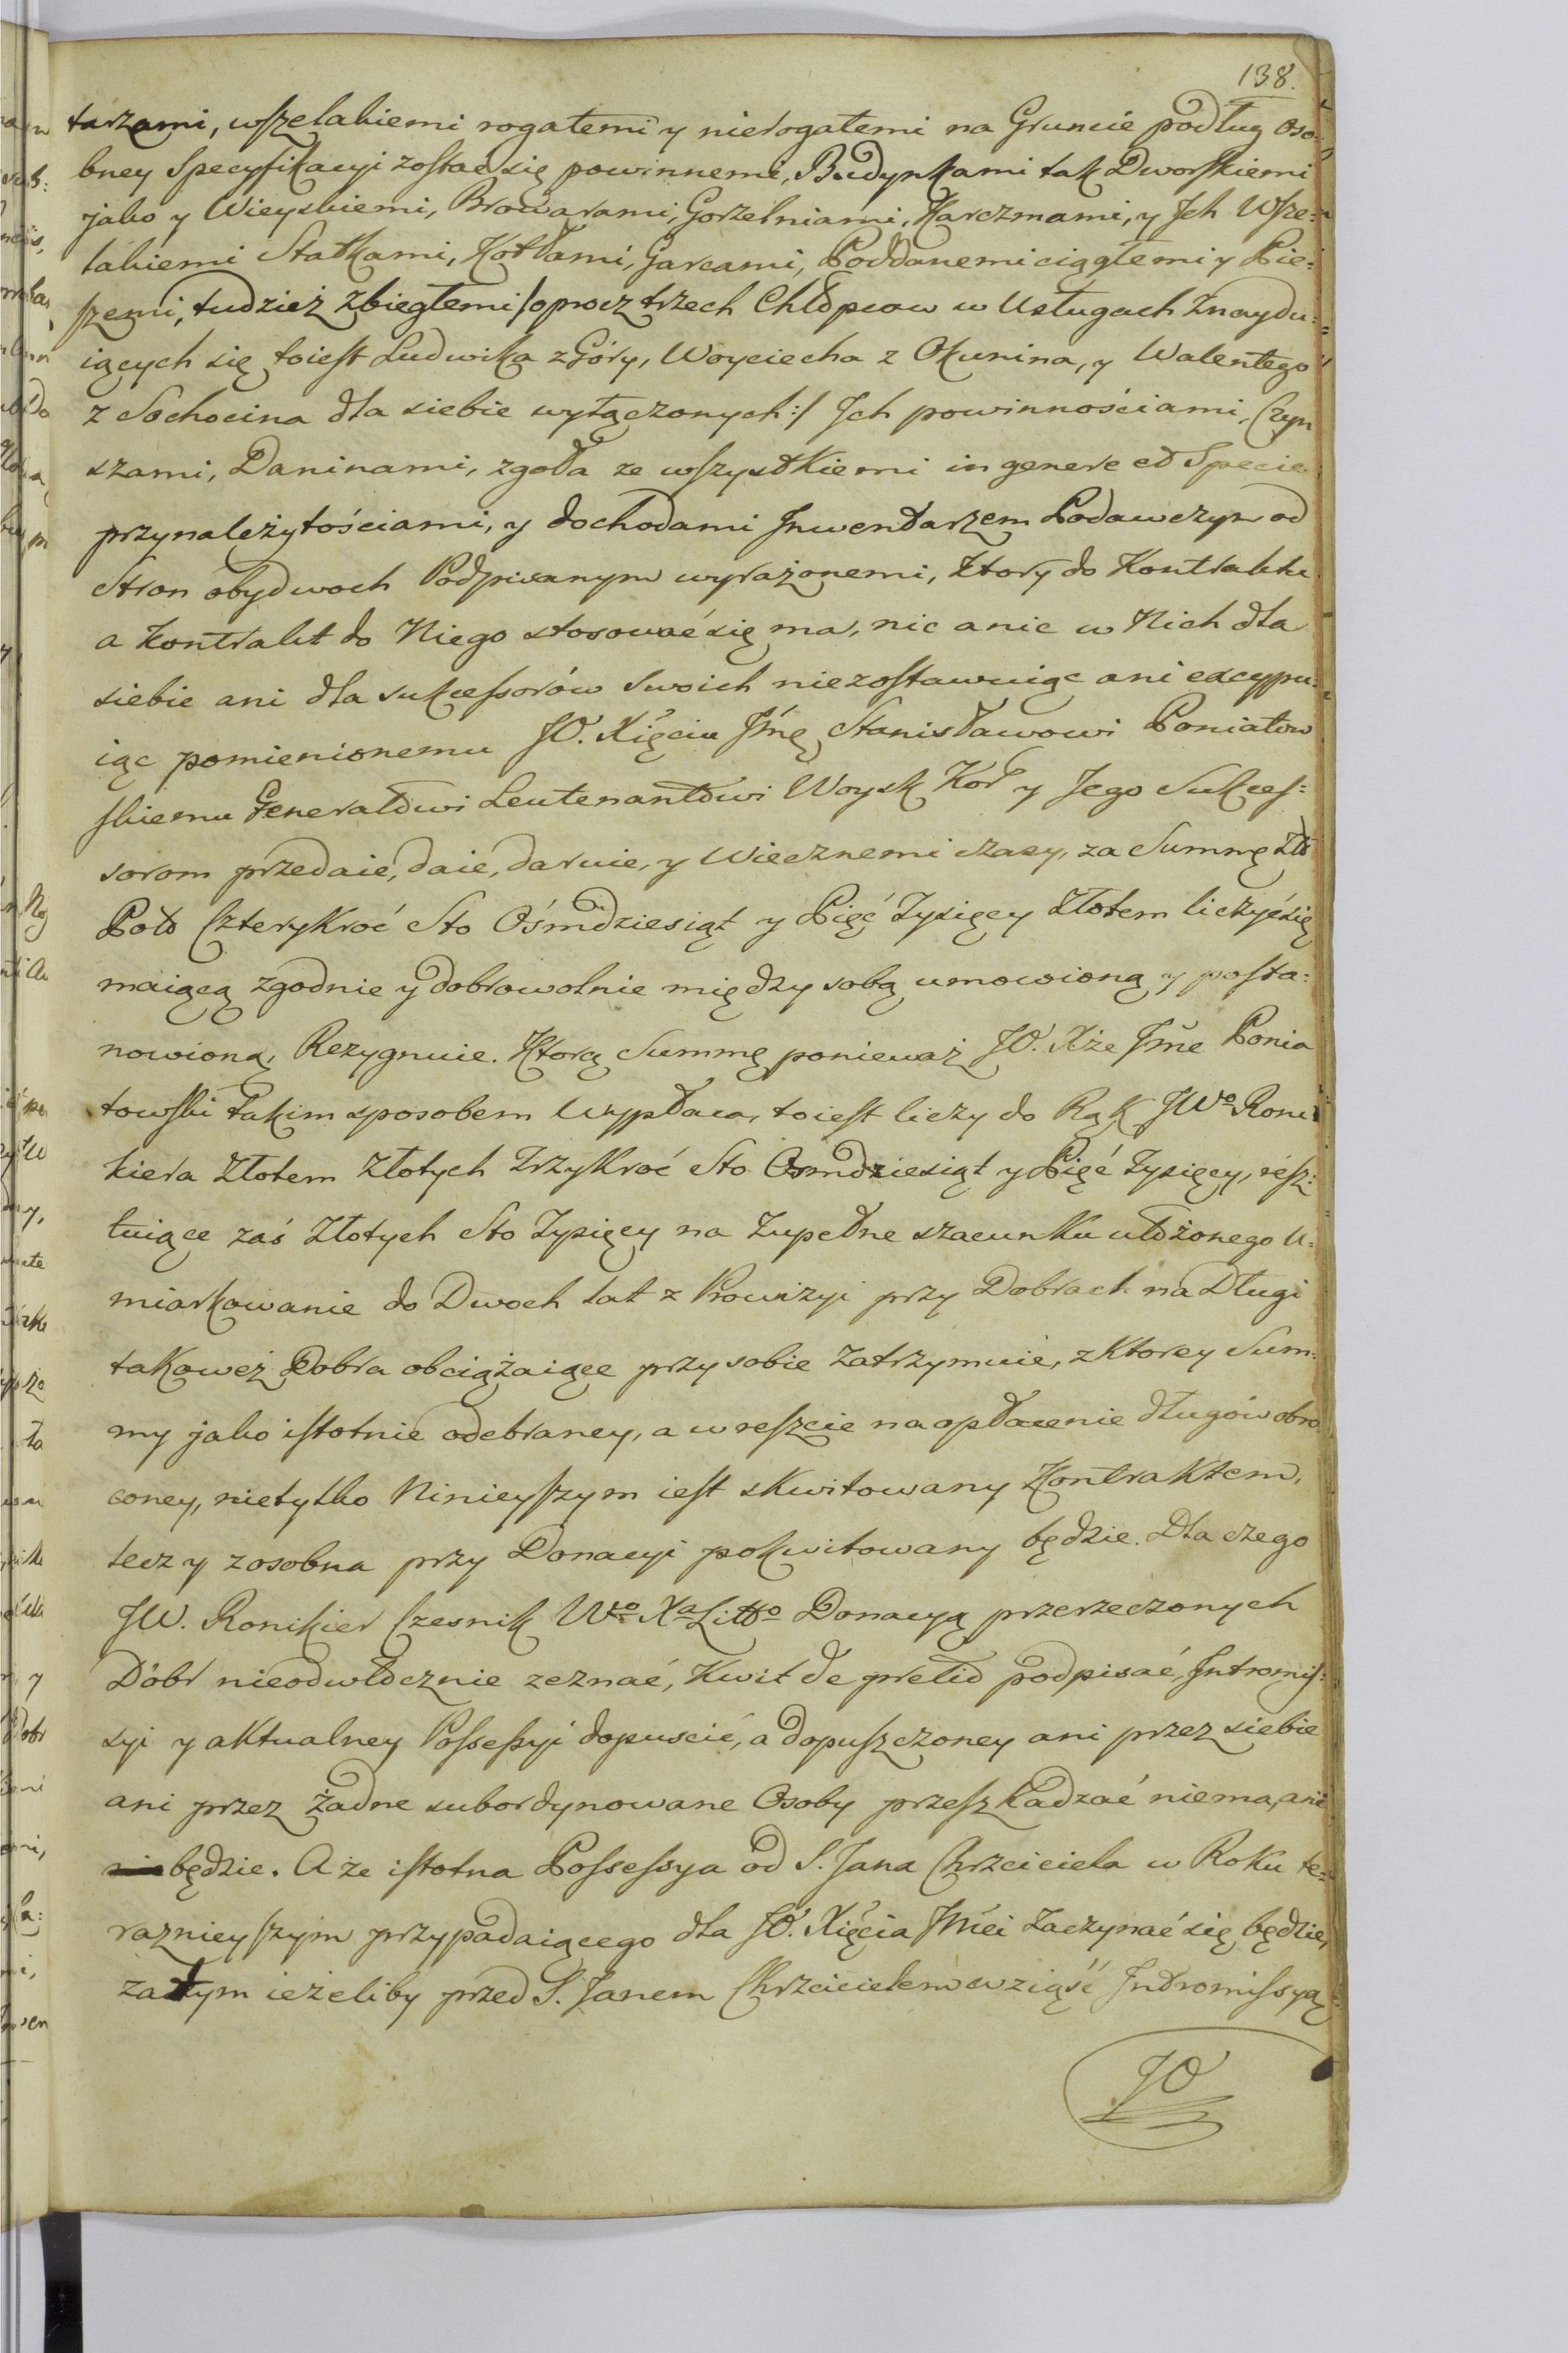 138.
tarzami, wszelakiemi rogatemi y nierogatemi na Gruncie podług oso-
bney Specyfikacyi zostać się powinnemi, Budynkami tak Dworskiemi
jako y Wieyskiemi, Browarami, Gorzelniami, Karczmami, y Jch Wsze=
lakiemi Statkami, Kotłami, Garcami, Poddanemi ciągłemi y Pie=
szemi, tudzież zbiegłemi /oprocz trzech Chłopcow w Usługach Znaydu=
iących się toiest Ludwika z Góry, Woyciecha z Okunina, y Walentego
z Sochocina dla siebie wyłączonych:/ Jch powinnościami, Czyn
szami, Daninami, zgoła ze wszystkiemi in genere et Specie
przynależytościami, y dochodami Jnwentarzem Podawczym od
Stron obydwoch Podpisanym wyrażonemi, Ktory do Kontraktu
a Kontrakt do Niego stosować się ma, nic a nic w Nich dla
siebie ani dla sukcessorów swoich niezostawuiąc ani excypu=
iąc pomienionemu JO. Xięciu Jmę Stanisławowi Poniatow
skiemu Generałowi Leutenantowi Woysk Kor y Jego Sukces=
sorom przedaie, daie, daruie, y Wiecznemi czasy, za Summę Zło
Pols Czterykroć Sto Ośmdziesiąt y Pięć Tysięcy Złotem liczyć się
maiącą zgodnie y dobrowolnie między sobą umowioną y posta=
nowioną, Rezygnuie. Ktorą Summę ponieważ JO. Xże Jme Ponia
towski takim sposobem Wypłaca, toiest liczy do Rąk JWo Roni
kiera Złotem Złotych Trzykroć Sto Osmdziesiąt y Pięć Tysięcy, resz=
tuiące zaś Złotych Sto Tysięcy na Zupełne szacunku ułożonego u=
miarkowanie do Dwoch lat z Prowizyi przy Dobrach na Długi
takoweż Dobra obciążaiące przy sobie Zatrzymuie, z Ktorey Sum=
my jako istotnie odebraney, a w reszcie na opłacenie długów obro
coney, nietylko Ninieyszym iest skwitowany Kontraktem,
lecz y zosobna przy Donacyi pokwitowany będzie. Dla czego
JW. Ronikier Czesnik Wgo Xa Litto Donacyą przerzeczonych
Dóbr nieodwłocznie zeznać, Kwit de pretio podpisać, Jntromis=
syi y aktualney Possessyi dopuscić, a dopuszczoney ani przez siebie
ani przez żadne subordynowane Osoby przeszkadzać niema, ani
będzie. A że istotna Possessya od S. Jana Chrzciciela w Roku te=
raznieyszym przypadaiącego dla JO. Xięcia Jmci Zaczynać się będzie,
zatym ieżeliby przed S. Janem Chrzcicielem wziąść Jntromissyą
JO